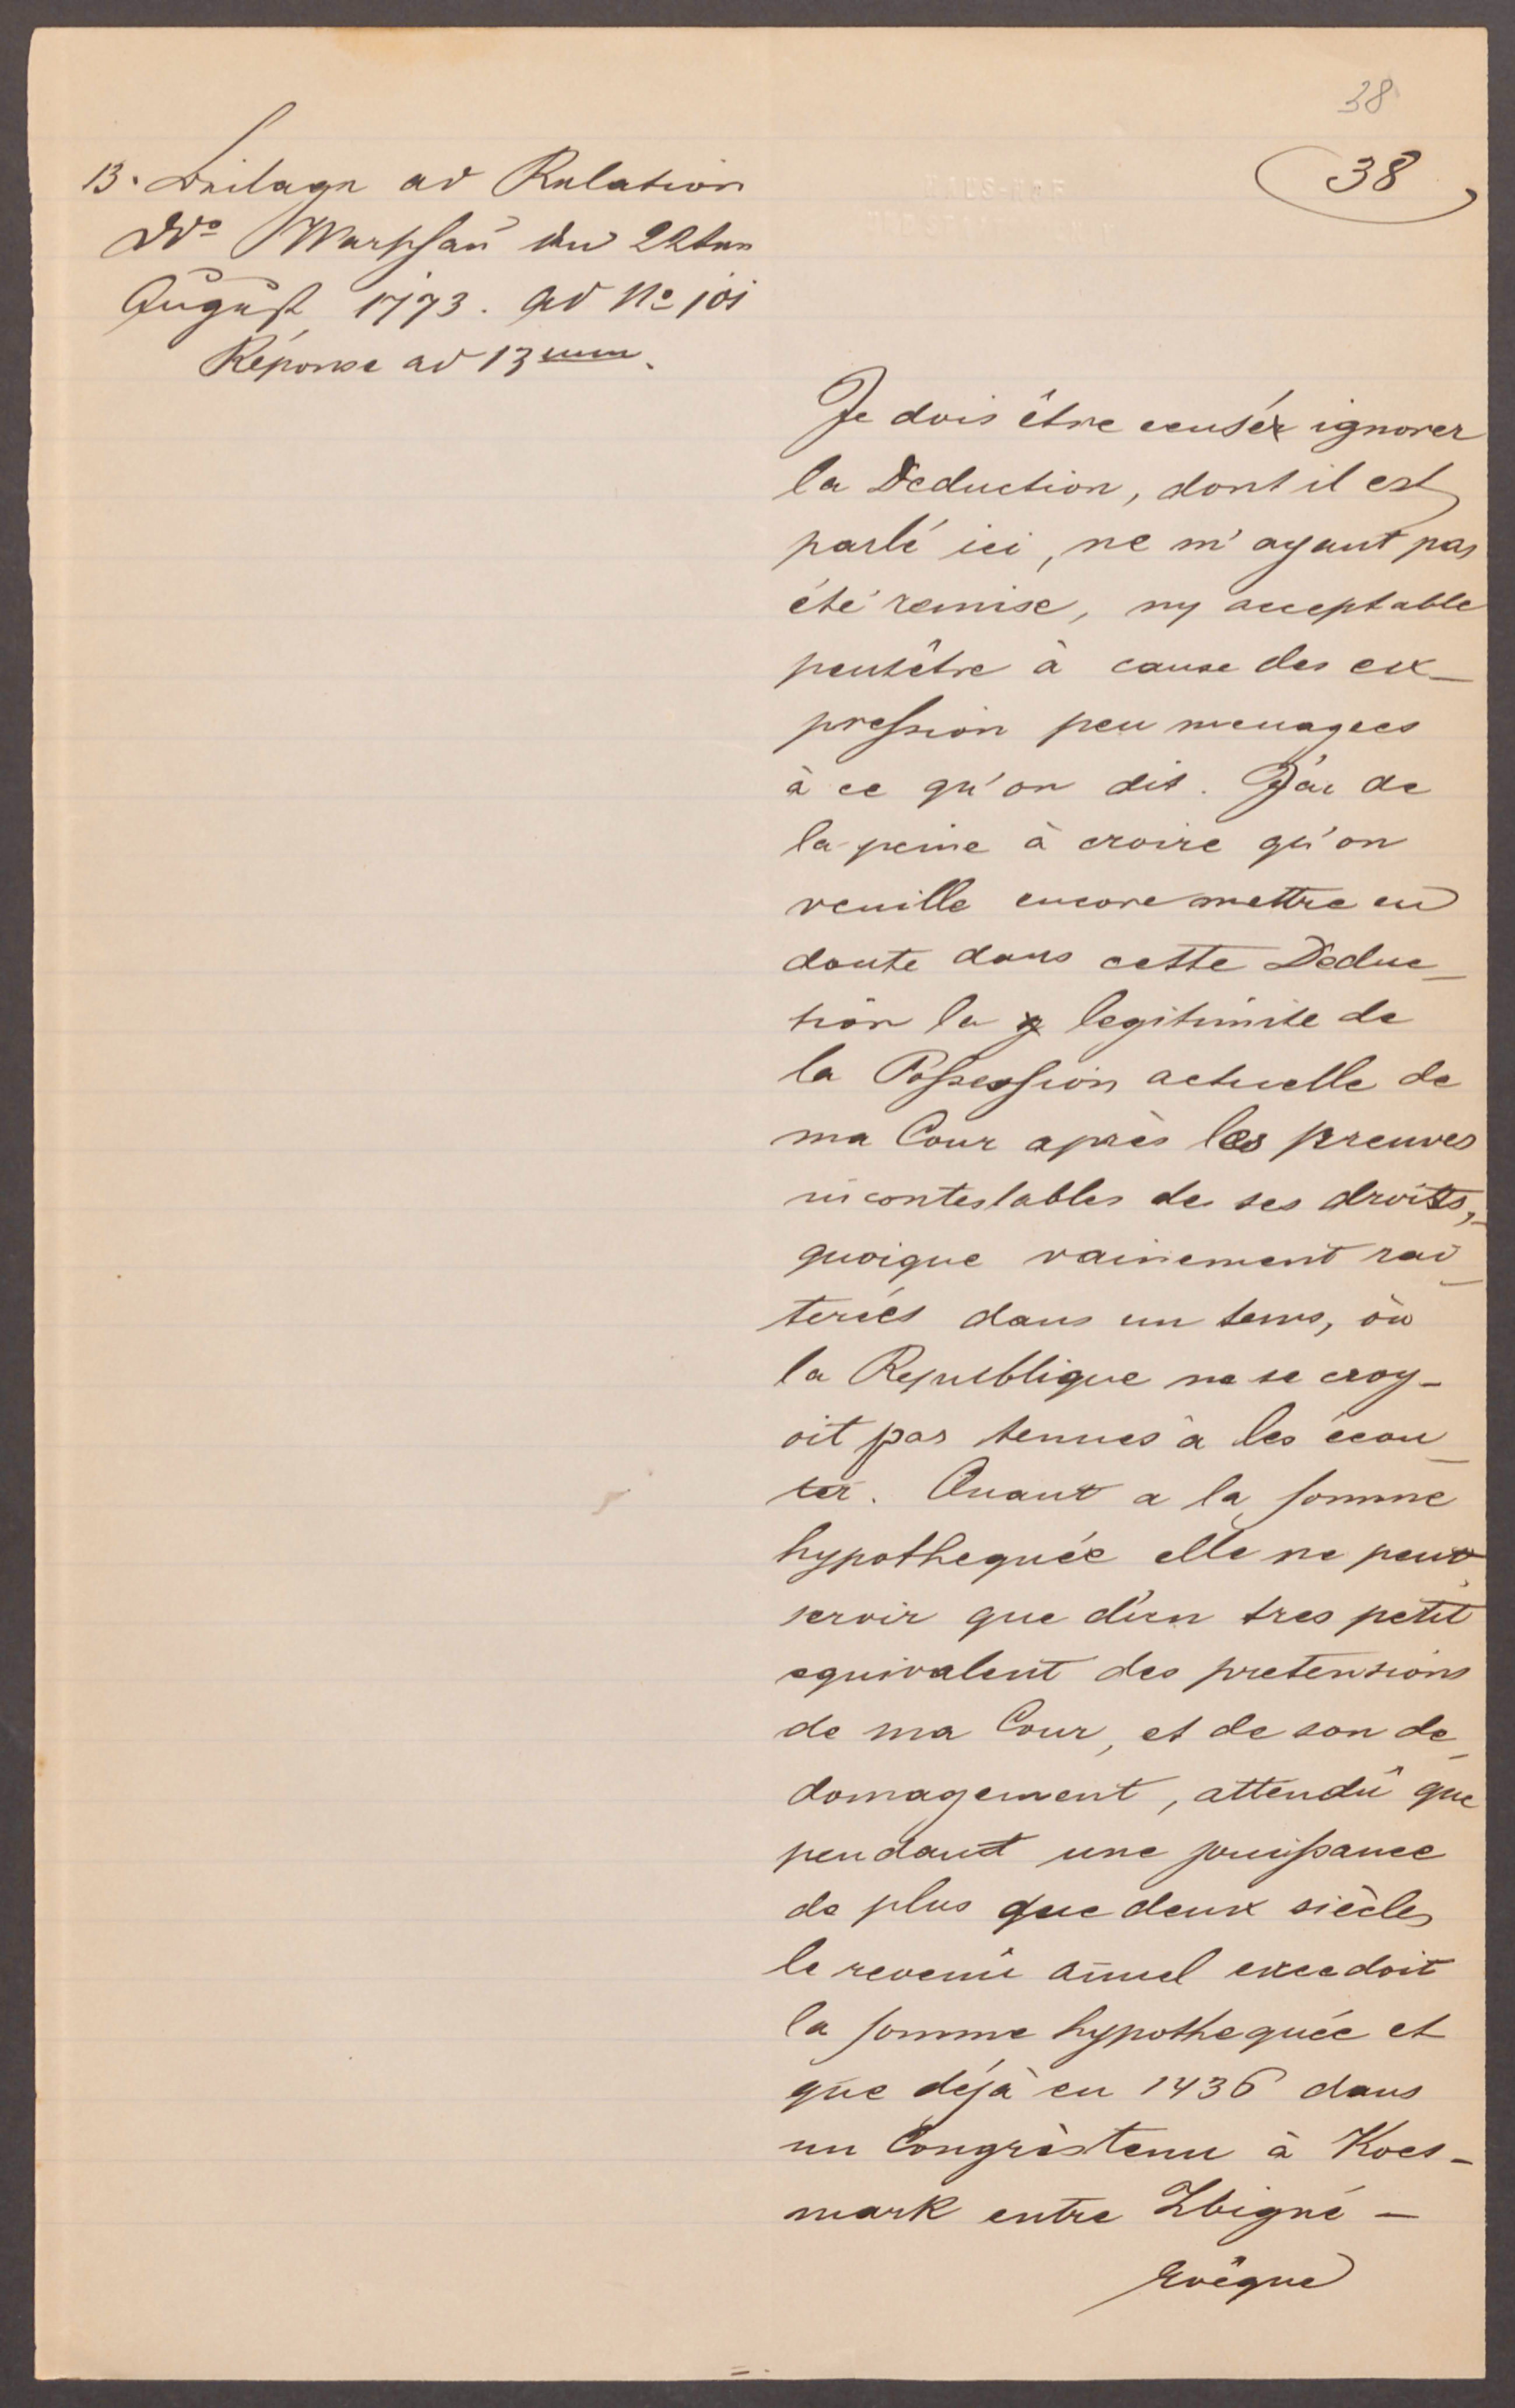 38
38
13. Beilage ad Relation
Ddo Warschau den 22ten
August 1773. ad No 101
Réponse ad 13um.
Je dois être censéx ignorer
la Deduction, dont il est
parlé ici, ne m'ayant pas
été remise, ny acceptable
peutêtre à cause des ex-
pression peu menagees
à ce qu'on dit. J'ai de
la peine à croire qu'on
veuille encore mettre en
doute dans cette Deduc-
tion la legitimite de
la Possession actuelle de
ma Cour après les preuves
incontestables de ses droits,
quoique vainement rai-
terées dans un tems, où
la Republique ne se croy-
oit pas tenues à les écou-
ter. Quant a la somme
hypothequée elle ne peut
servir que d'un tres petit
equivalent des pretensions
de ma Cour, et de son de-
domagement, attendû que
pendant une jouissance
de plus que deux siècles
le revenû annuel excedoit
la somme hypothequée et
que déjà en 1436 dans
un Congrès tenu à Koes-
mark entre Zbigné -
Evêque